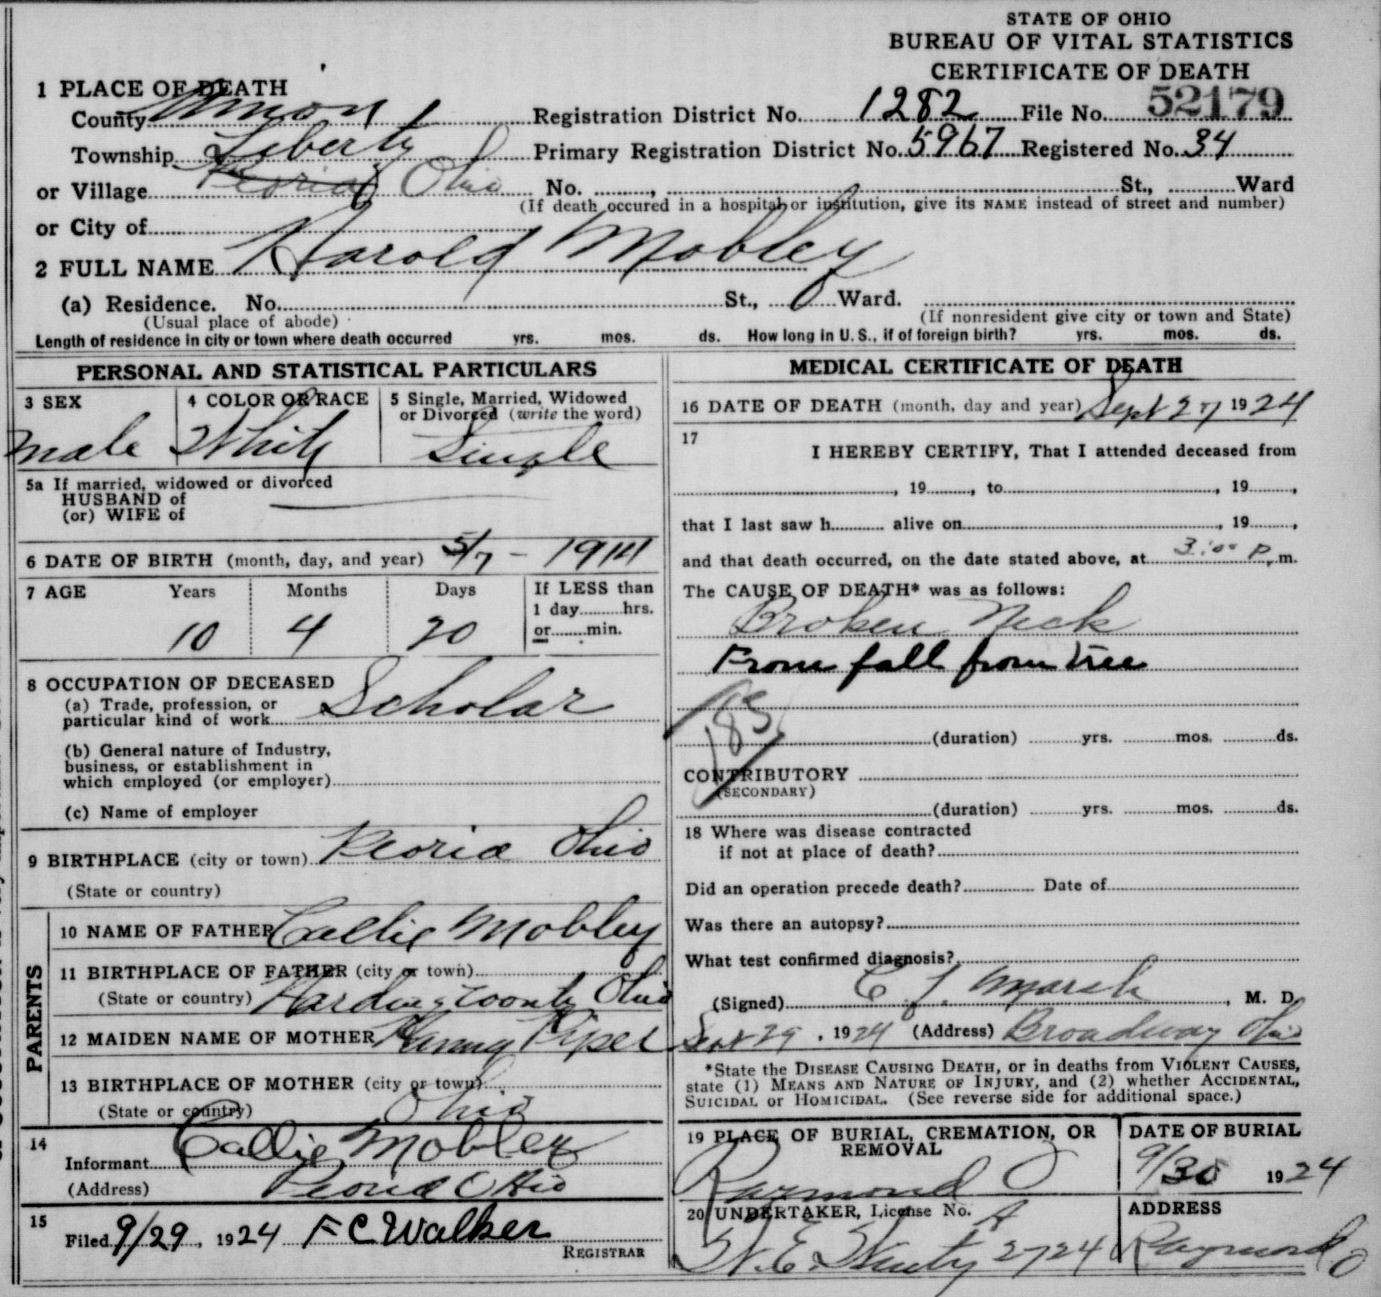 STATE OF OHIO
BUREAU OF VITAL STATISTICS
CERTIFICATE OF DEATH
1 PLACE OF DEATH
County Union Registration District No. 1282 File No. 52179
Township Liberty Primary Registration District No. 5967 Registered No. 34
or Village Peoria Ohio No. , St., Ward
(If death occured in a hospital or institution, give its NAME instead of street and number)
or City of
2 FULL NAME Harold Mobley
(a) Residence. No. St., Ward.
(Usual place of abode) (If nonresident give city or town and State)
Length of residence in city or town where death occurred yrs. mos. ds. How long in U. S., if of foreign birth? yrs. mos. ds.
PERSONAL AND STATISTICAL PARTICULARS
3 SEX
male
4 COLOR OR RACE
White
5 Single, Married, Widowed
or Divorced (write the word)
Single
5a If married, widowed or divorced
HUSBAND of
(or) WIFE of
6 DATE OF BIRTH (month, day, and year) 5/7 - 1914
7 AGE Years Months Days If LESS than
1 day hrs.
10 4 20 or min.
8 OCCUPATION OF DECEASED
(a) Trade, profession, or
particular kind of work Scholar
(b) General nature of Industry,
business, or establishment in
which employed (or employer)
(c) Name of employer
9 BIRTHPLACE (city or town) Peoria Ohio
(State or country)
PARENTS
10 NAME OF FATHER Callie Mobley
11 BIRTHPLACE OF FATHER (city or town)
(State or country) Harding County Ohio
12 MAIDEN NAME OF MOTHER Fanny Piper
13 BIRTHPLACE OF MOTHER (city or town)
(State or country) Ohio
14
Informant Callie Mobley
(Address) Peoria Ohio
15
Filed 9/29, 1924 F C Walker
REGISTRAR
MEDICAL CERTIFICATE OF DEATH
16 DATE OF DEATH (month, day and year) Sept 27 1924
17
I HEREBY CERTIFY, That I attended deceased from
, 19 , to , 19 ,
that I last saw h alive on , 19 ,
and that death occurred, on the date stated above, at 3:00 P.m.
The CAUSE OF DEATH* was as follows:
Broken Neck
From fall from tree
185
(duration) yrs. mos. ds.
CONTRIBUTORY
(SECONDARY)
(duration) yrs. mos. ds.
18 Where was disease contracted
if not at place of death?
Did an operation precede death? Date of
Was there an autopsy?
What test confirmed diagnosis?
(Signed) C. J. Marsh, M. D.
Sept 29, 1924 (Address) Broadway Ohio
*State the DISEASE CAUSING DEATH, or in deaths from VIOLENT CAUSES,
state (1) MEANS AND NATURE OF INJURY, and (2) whether ACCIDENTAL,
SUICIDAL or HOMICIDAL. (See reverse side for additional space.)
19 PLACE OF BURIAL, CREMATION, OR
REMOVAL
Raymond O
DATE OF BURIAL
9/30 1924
20 UNDERTAKER, License No. A
2724
ADDRESS
Raymond O